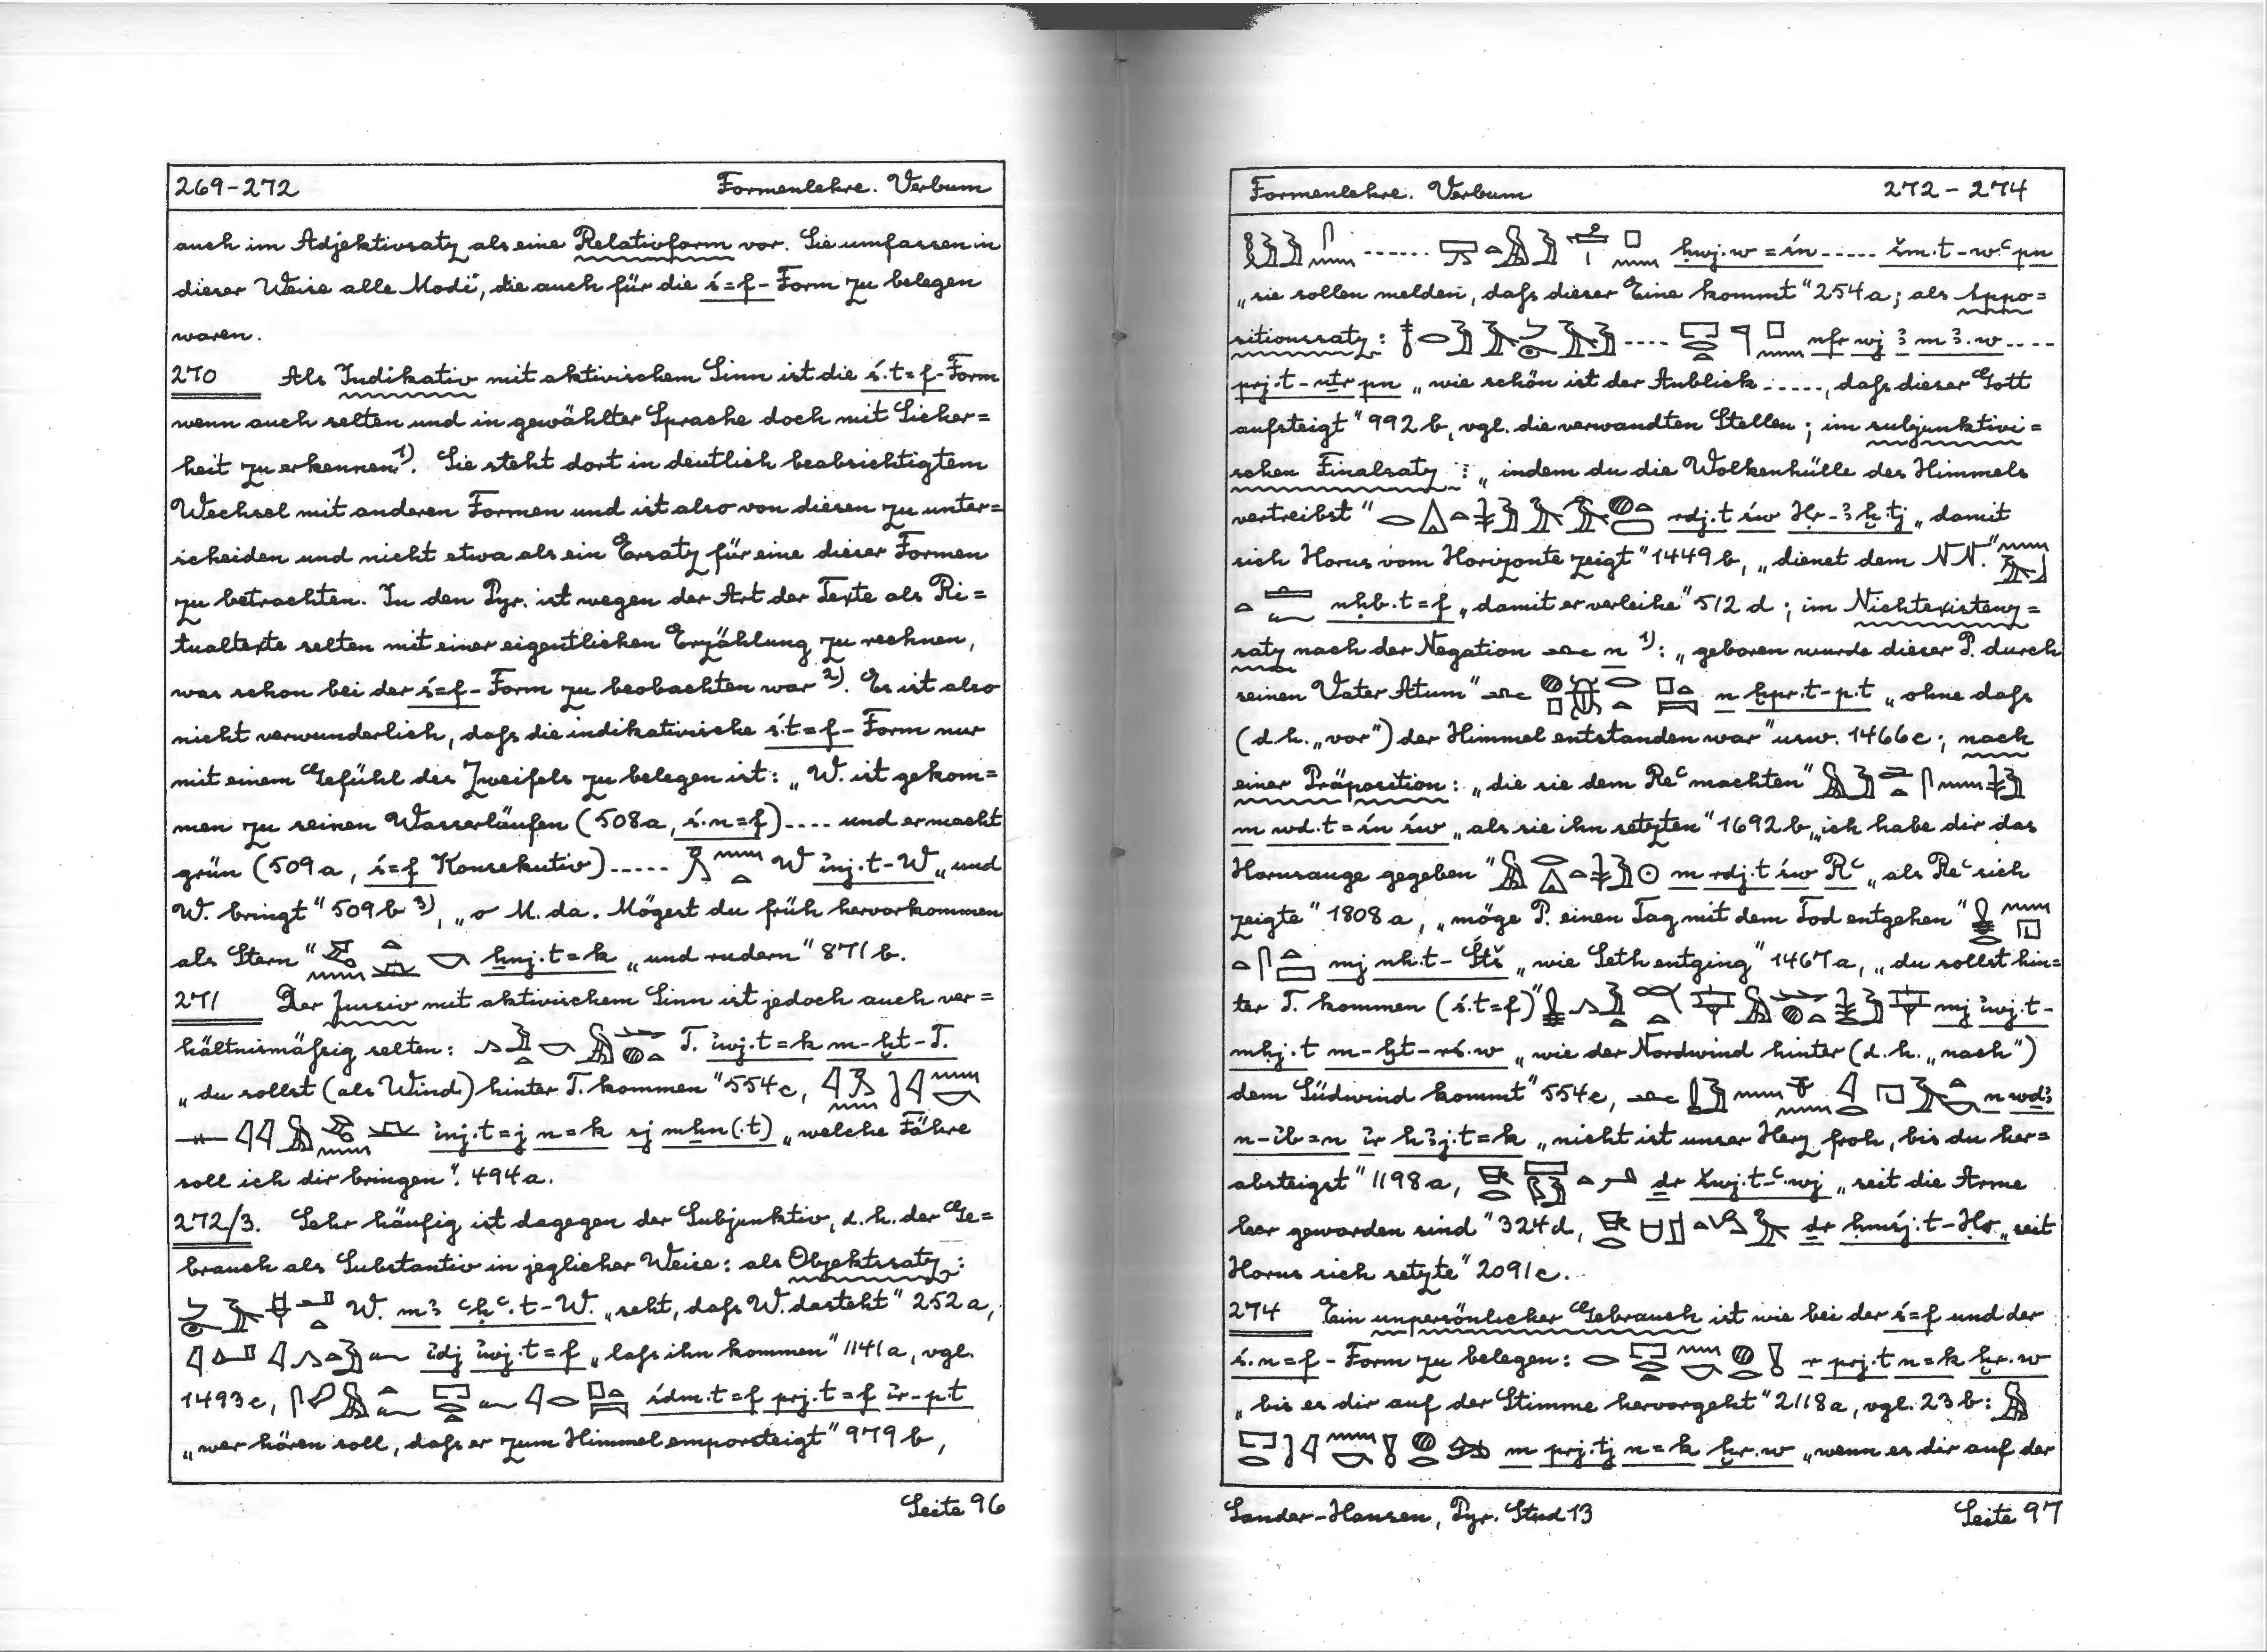 269-272 Formenlehre. Verbum
auch im Adjektivsatz als eine Relativform vor. Sie umfassen in
dieser Weise alle Modi, die auch für die ś=f-Form zu belegen
waren.
270 Als Indikativ mit aktivischem Sinn ist die ś.t=f-Form
wenn auch selten und in gewählter Sprache doch mit Sicher=
heit zu erkennen¹). Sie steht dort in deutlich beabsichtigtem
Wechsel mit anderen Formen und ist also von diesen zu unter=
scheiden und nicht etwa als ein Ersatz für eine dieser Formen
zu betrachten. In den Pyr. ist wegen der Art der Texte als Ri=
tualtexte selten mit einer eigentlichen Erzählung zu rechnen,
was schon bei der ś=f-Form zu beobachten war²). Es ist also
nicht verwunderlich, daſs die indikativische ś.t=f-Form nur
mit einem Gefühl des Zweifels zu belegen ist: „W. ist gekom=
men zu seinen Wasserläufen (508a, ś.n=f).... und er macht
grün (509a, ś=f Konsekutiv)..... W i҆nj.t-W „und
W. bringt" 509b³), „o M. da. Mögest du früh hervorkommen
als Stern" ẖnj.t=k „und rudern" 871b.
271 Der Jussiv mit aktivischem Sinn ist jedoch auch ver=
hältnismäſsig selten: T. i҆wj.t=k m-ḫt-T.
„du sollst (als Wind) hinter T. kommen" 554c,
i҆nj.t=j n=k sj mẖn(.t) „welche Fähre
soll ich dir bringen". 494a.
272/3. Sehr häufig ist dagegen der Subjunktiv, d.h. der Ge=
brauch als Substantiv in jeglicher Weise: als Objektssatz:
W. mꜣ ꜥḥꜥ.t-W. „seht, daſs W. dasteht" 252a,
i҆dj i҆wj.t=f „laſs ihn kommen" 1141a, vgl.
1493c, śdm.t=f prj.t=f i҆r-p.t
„wer hören soll, daſs er zum Himmel emporsteigt" 979b,
Seite 96
Formenlehre. Verbum 272-274
...... ḥwj.w=śn..... šm.t-wꜥ pn
„sie sollen melden, daſs dieser Eine kommt" 254a; als Appo=
sitionssatz: .... nfr wj ꜣ mꜣ.w....
prj.t-nṯr pn „wie schön ist der Anblick....., daſs dieser Gott
aufsteigt" 992b, vgl. die verwandten Stellen; im subjunktivi=
schen Finalsatz: „indem du die Wolkenhülle des Himmels
vertreibst" rdj.t św Ḥr-ꜣḫ.tj „damit
sich Horus vom Horizonte zeigt" 1449b, „dienet dem NN."
nḥb.t=f „damit er verleihe" 512d; im Nichtexistenz=
satz nach der Negation n¹): „geboren wurde dieser P. durch
seinen Vater Atum" n ḫpr.t-p.t „ohne daſs
(d.h. „vor") der Himmel entstanden war" usw. 1466c; nach
einer Präposition: „die sie dem Reꜥ machten"
m wd.t=śn św „als sie ihn setzten" 1692b, „ich habe dir das
Horusauge gegeben" m rdj.t św Rꜥ „als Reꜥ sich
zeigte" 1808a, „möge P. einen Tag mit dem Tod entgehen"
mj nh.t-Štš „wie Seth entging" 1467a, „du sollst hin=
ter T. kommen (ś.t=f)" mj i҆wj.t-
mḥj.t m-ḫt-rś.w „wie der Nordwind hinter (d.h. „nach")
dem Südwind kommt" 554c, n wdꜣ
n-i҆b=n i҆r hꜣj.t=k „nicht ist unser Herz froh, bis du her=
absteigst" 1198a, dr šwj.t-ꜥ.wj „seit die Arme
leer geworden sind" 324d, dr ḥmśj.t-Ḥr „seit
Horus sich setzte" 2091c.
274 Ein unpersönlicher Gebrauch ist wie bei der ś=f und der
ś.n=f-Form zu belegen: r prj.t n=k ḫr.w
„bis es dir auf der Stimme hervorgeht" 2118a, vgl. 23b:
m prj.tj n=k ḫr.w „wenn es dir auf der
Sander-Hansen, Pyr. Stud 13 Seite 97